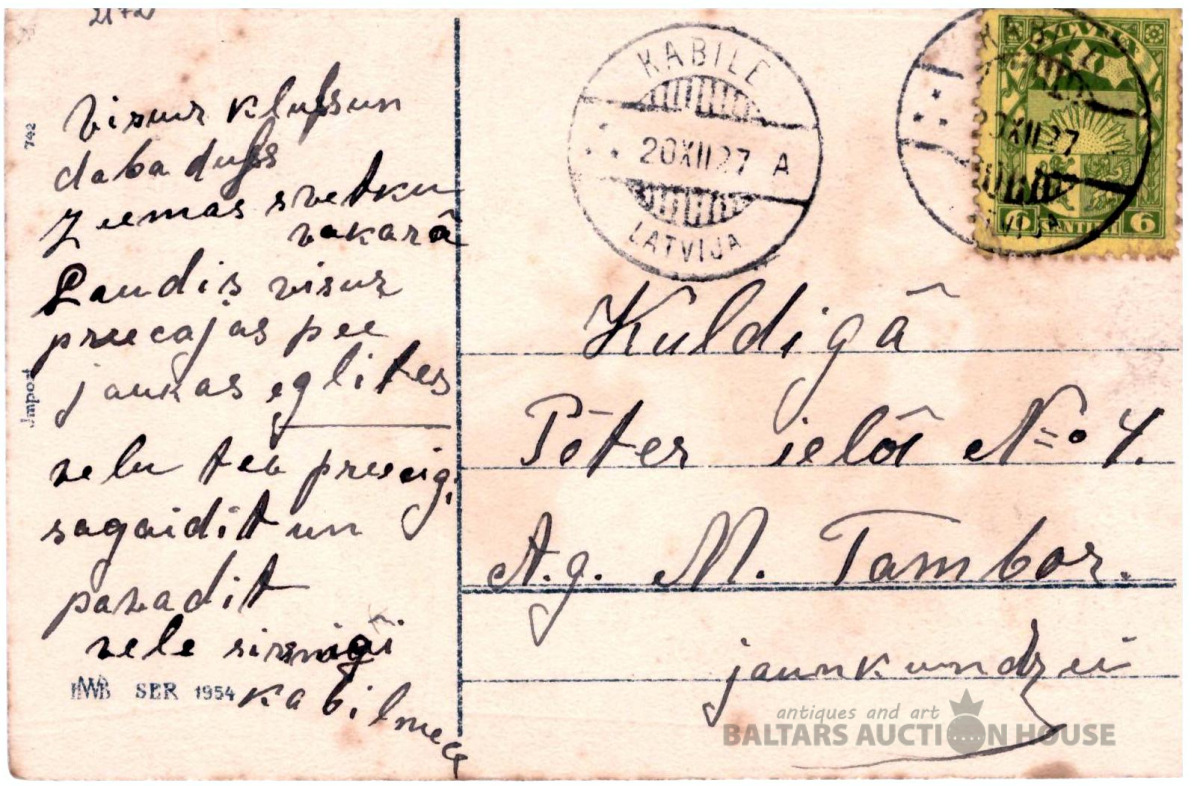 2172
742
Import
visur klussun
daba duss
Zeemas svetku
vakarâ
Laudis visur
preecajas pee
jaukas eglites
velu tev preecig,
sagaidit un
pavadit
vele sirsnigi
Kabilnee
HWB SER 1954
KABILE
20XII27 A
LATVIJA
KABILE
20XII27
LATVIJA
LATVIJA
6 SANTIMI 6
Kuldigâ
Pôter ielâ No 4.
A.g. M. Tambor.
jaunkundzei
antiques and art
BALTARS AUCTION HOUSE